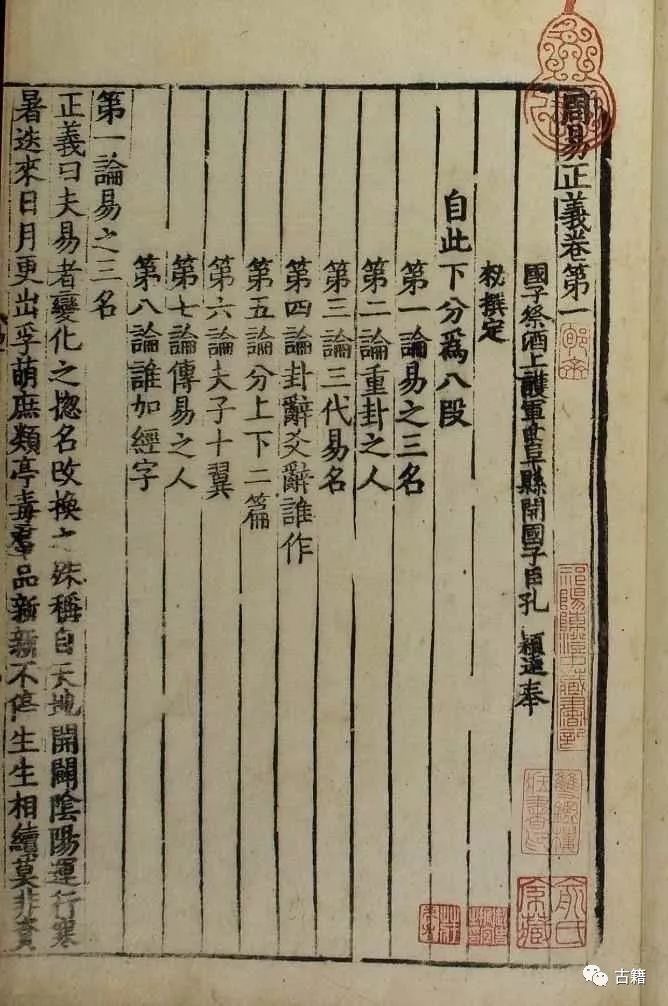 周易正義卷第一
國子祭酒上護軍曲阜縣開國子臣孔 穎達奉
勑撰定
自此下分爲八段
第一論易之三名
第二論重卦之人
第三論三代易名
第四論卦辭爻辭誰作
第五論分上下二篇
第六論夫子十翼
第七論傳易之人
第八論誰加經字
第一論易之三名
正義曰夫易者變化之揔名攺換之殊稱自天地開闢陰陽運行寒
暑迭來日月更出孚萌庶類亭毒羣品新新不停生生相續莫非資
祁陽陳澄中藏書記
俞氏
家藏
古籍